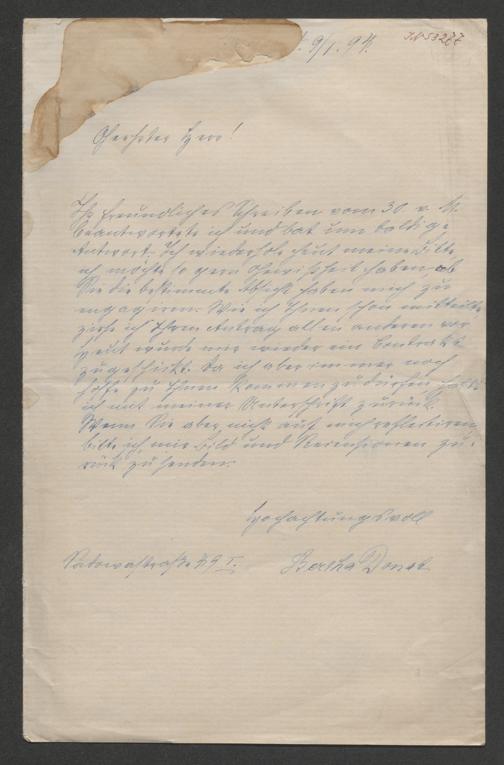 9/1. 94.
J.N 53277
Geehrter Herr!
Ihr freundliches Schreiben vom 30. v. M.
beantwortete ich und bat um baldige
Antwort. Ich wiederhole heut meine Bitte
ich möchte so gern Gewißheit haben, ob
Sie die bestimmte Absicht haben mich zu
engagiren. Wie ich Ihnen schon mitteilte
ziehe ich Ihren Antrag allen anderen vor
heut wurde mir wieder ein Contrakt
zugeschickt. da ich aber immer noch
hoffe zu Ihnen kommen zu dürfen
ich mit meiner Unterschrift zurück.
Wenn Sie aber nicht auf mich reflectiren
bitte ich mir Bild und Recensionen zu-
rück zu senden.
Hochachtungsvoll
Bertha Donat
Sadowastraße 49 I.